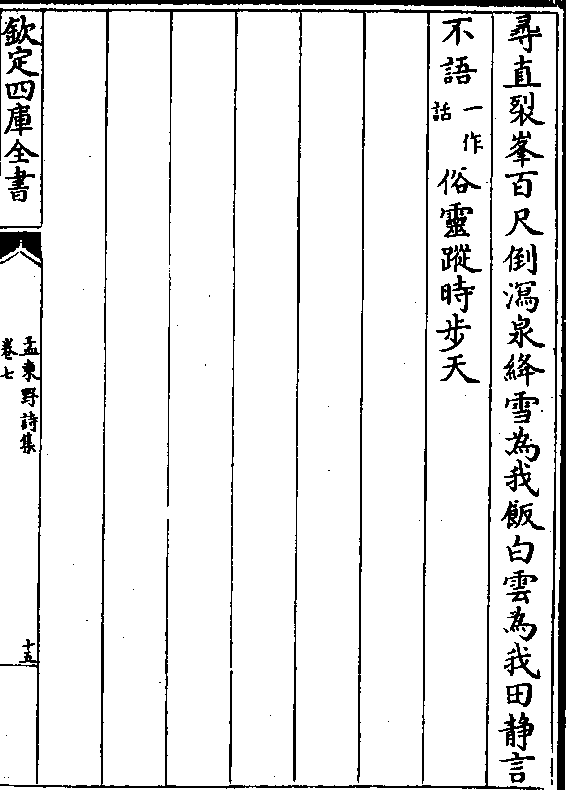 尋直裂峯百尺倒瀉泉絳雪為我飯白雲為我田静言
不語一作話俗靈蹤時步天
欽定四庫全書
孟東野詩集
卷七
十五